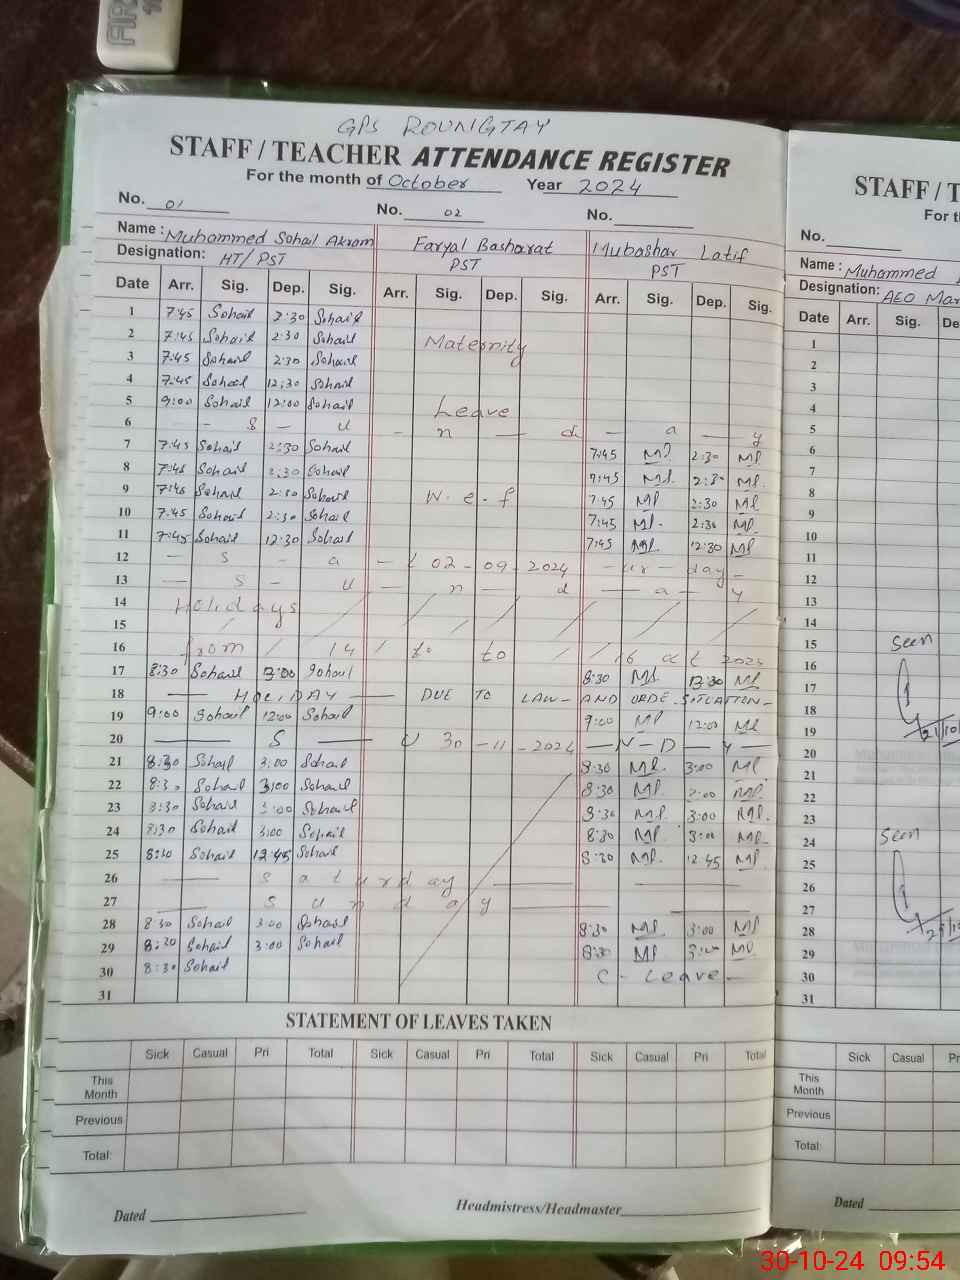 GPS ROUNGTAY
STAFF / TEACHER ATTENDANCE REGISTER
For the month of October Year 2024
No. 01 No. 02 No.
Name : Muhammed Sohail Akram Faryal Basharat Mubashar Latif
Designation: HT/PST PST PST
Date Arr. Sig. Dep. Sig. Arr. Sig. Dep. Sig. Arr. Sig. Dep. Sig.
1 7:45 Sohail 2:30 Sohail
2 7:45 Sohail 2:30 Sohail Maternity
3 7:45 Sohail 2:30 Sohail
4 7:45 Sohail 12:30 Sohail
5 9:00 Sohail 12:00 Sohail Leave
6 - S - u - n - d - a - y
7 7:45 Sohail 2:30 Sohail 7:45 Ml 2:30 Ml
8 7:45 Sohail 2:30 Sohail 7:45 Ml. 2:30 Ml.
9 7:45 Sohail 2:30 Sohail W. e. f 7:45 Ml 2:30 Ml
10 7:45 Sohail 2:30 Sohail 7:45 Ml. 2:30 Ml.
11 7:45 Sohail 12:30 Sohail 7:45 Ml. 12:30 Ml
12 - S - a - t 02-09-2024 - ur - day -
13 - S - u - n - d - a - y
14 Holidays
15
16 from 14 to 16
17 8:30 Sohail Sohail 8:30 Ml Ml
18 — HOLIDAY — DUE TO LAW - AND ORDE SITUATION -
19 9:00 Sohail 12:00 Sohail 9:00 Ml 12:00 Ml
20 — S — U 30-11-2024 — N - D — Y —
21 8:30 Sohail 3:00 Sohail 8:30 Ml. 3:00 Ml
22 8:30 Sohail 3:00 Sohail 8:30 Ml. 3:00 Ml.
23 8:30 Sohail 3:00 Sohail 8:30 Ml. 3:00 Ml.
24 8:30 Sohail 3:00 Sohail 8:30 Ml. 3:00 Ml.
25 8:30 Sohail 12:45 Sohail 8:30 Ml. 12:45 Ml.
26 — S a t u r d a y —
27 — S u n d a y —
28 8:30 Sohail 3:00 Sohail 8:30 Ml 3:00 Ml
29 8:30 Sohail 3:00 Sohail 8:30 Ml 3:00 Ml
30 8:30 Sohail C - Leave -
31
STATEMENT OF LEAVES TAKEN
Sick Casual Pri Total Sick Casual Pri Total Sick Casual Pri Total
This Month
Previous
Total:
Dated Headmistress/Headmaster
STAFF / T
For th
No.
Name : Muhammed
Designation: AEO Mar
Date Arr. Sig. De
1
2
3
4
5
6
7
8
9
10
11
12
13
14
15 Seen
16
17
18
19 21/10
20
21
22
23
24 Seen
25
26
27
28
29
30
31
Sick Casual Pr
This Month
Previous
Total:
Dated
30-10-24 09:54